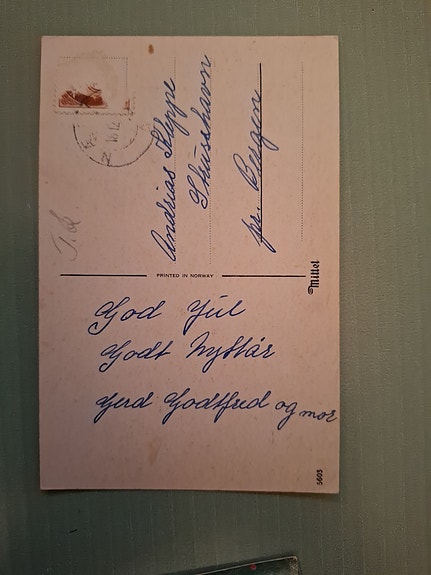 God Jul
Godt Nyttår
Gerd Godtfred og mor
Andreas Kleppe
Skusshavn
pr. Bergen
PRINTED IN NORWAY
Mittet
5603